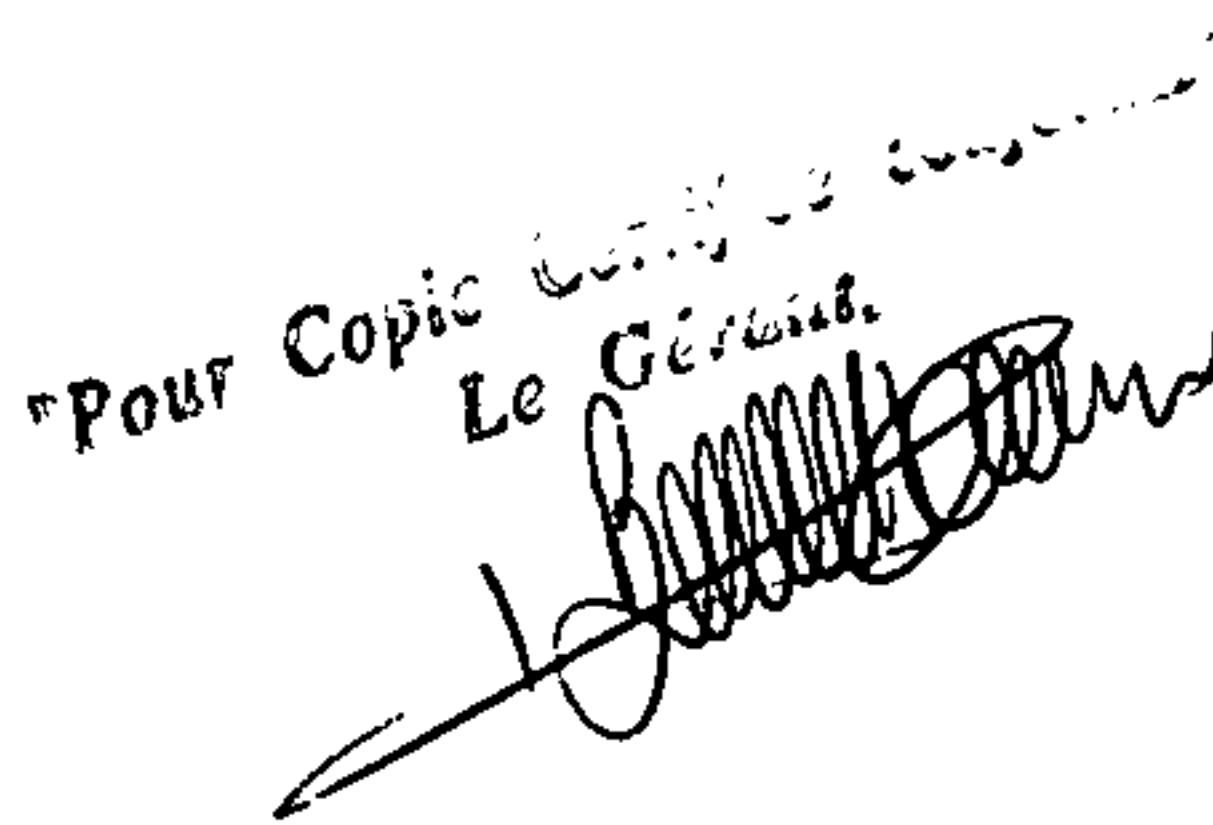 "Pour Copie Certifiée conforme
Le Gérant.